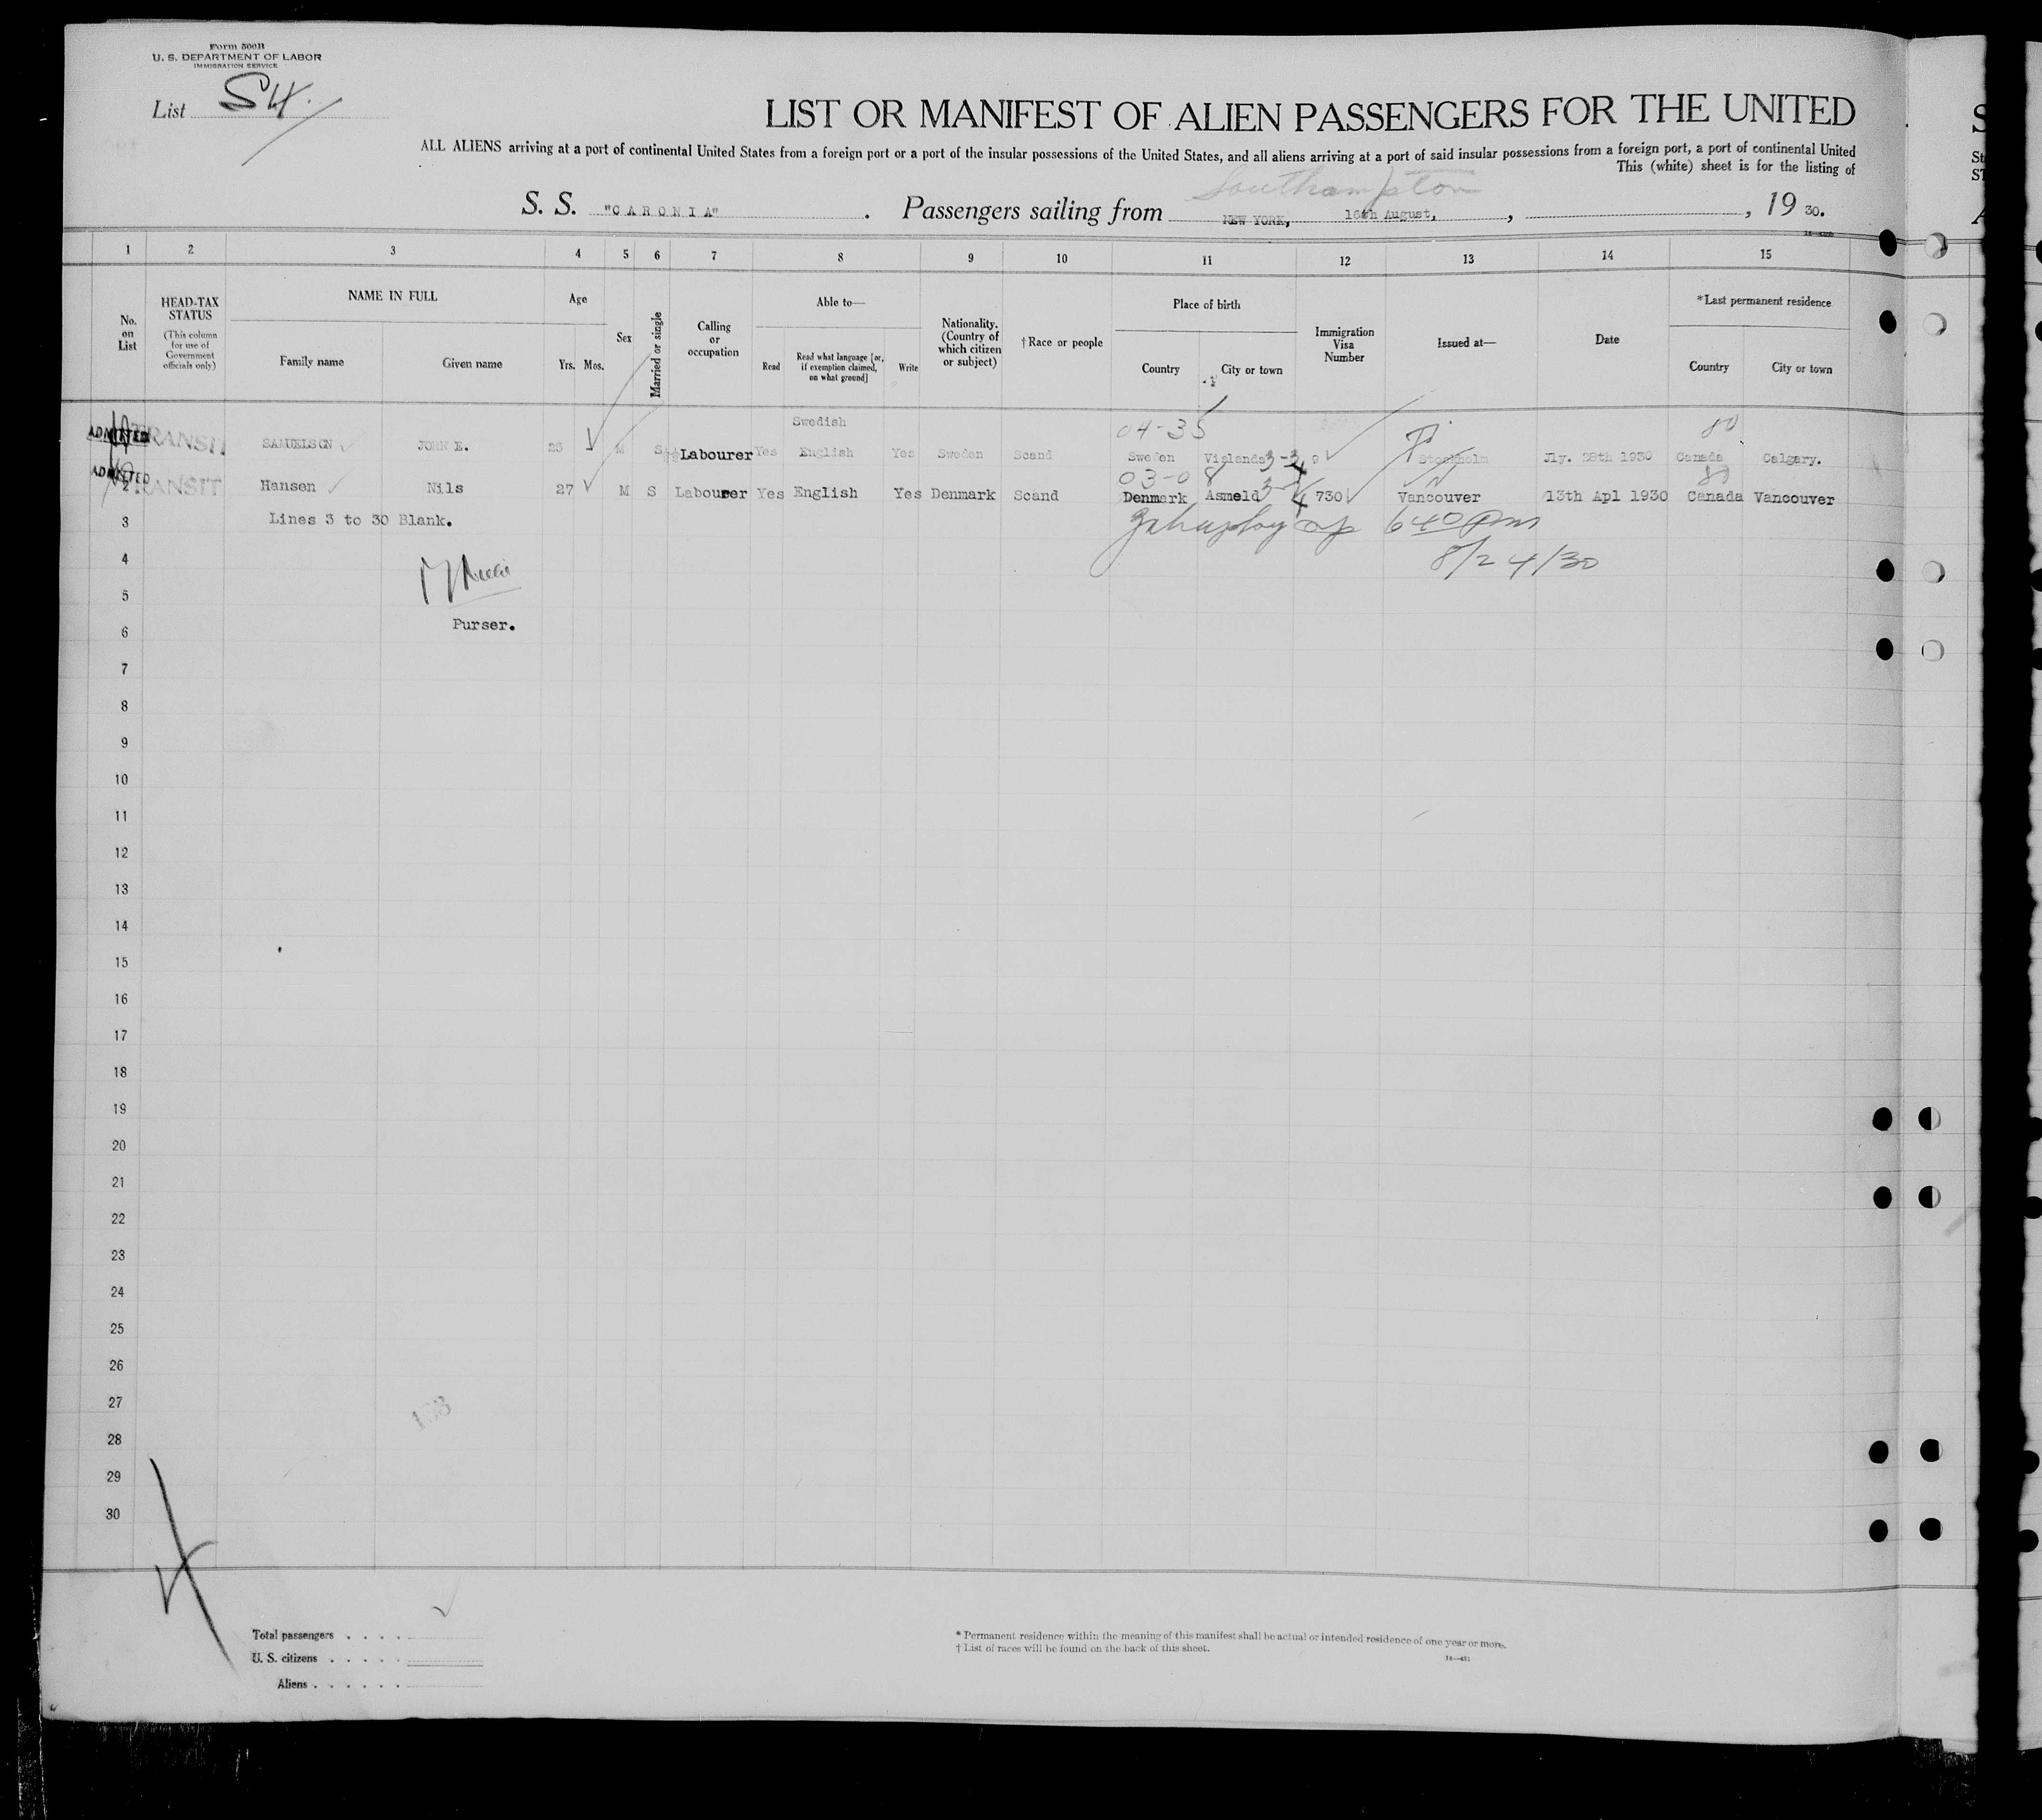 Form 500B
U. S. DEPARTMENT OF LABOR
IMMIGRATION SERVICE
List S4.
LIST OR MANIFEST OF ALIEN PASSENGERS FOR THE UNITED
ALL ALIENS arriving at a port of continental United States from a foreign port or a port of the insular possessions of the United States, and all aliens arriving at a port of said insular possessions from a foreign port, a port of continental United
This (white) sheet is for the listing of
Southampton
S. S. "CARONIA". Passengers sailing from NEW YORK, 16th August, , 19 30.
1 2 3 4 5 6 7 8 9 10 11 12 13 14 15
No. on List
HEAD-TAX STATUS
(This column for use of Government officials only)
NAME IN FULL
Family name Given name
Age
Yrs. Mos.
Sex
Married or single
Calling or occupation
Able to—
Read
Read what language [or, if exemption claimed, on what ground]
Write
Nationality. (Country of which citizen or subject)
†Race or people
Place of birth
Country City or town
Immigration Visa Number
Issued at—
Date
*Last permanent residence
Country City or town
Swedish
04-35 80
ADMITTED TRANSIT SAMUELSON JOHN E. M S Labourer Yes English Yes Sweden Scand Sweden 3-3 9 Stockholm Jly. 28th 1930 Canada Calgary.
03-08 80
ADMITTED TRANSIT
2 Hansen Nils 27 M S Labourer Yes English Yes Denmark Scand Denmark Asmeld 730 Vancouver 13th Apl 1930 Canada Vancouver
3 Lines 3 to 30 Blank. 640 pm
4 8/24/30
5
Purser.
6
7
8
9
10
11
12
13
14
15
16
17
18
19
20
21
22
23
24
25
26
27
28
29
30
Total passengers . . . .
U. S. citizens . . . . .
Aliens . . . . . .
* Permanent residence within the meaning of this manifest shall be actual or intended residence of one year or more.
† List of races will be found on the back of this sheet.